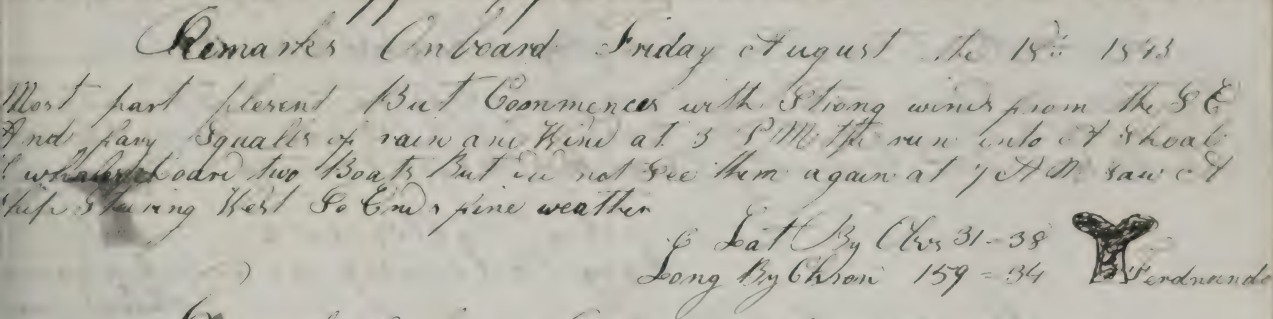 Remarks Onboard Friday August the 18th 1843
Most part plesent But Commences with Strong winds from the S E
And havy Squalls of rain and Wind at 3 P M the run into A Shoal
whales two Boats But did not See them again at 7 A M saw A
Ship Stearing West So Ends fine weather
Lat By Obs 31-38
Long By Chron 159=34 Ferdnando